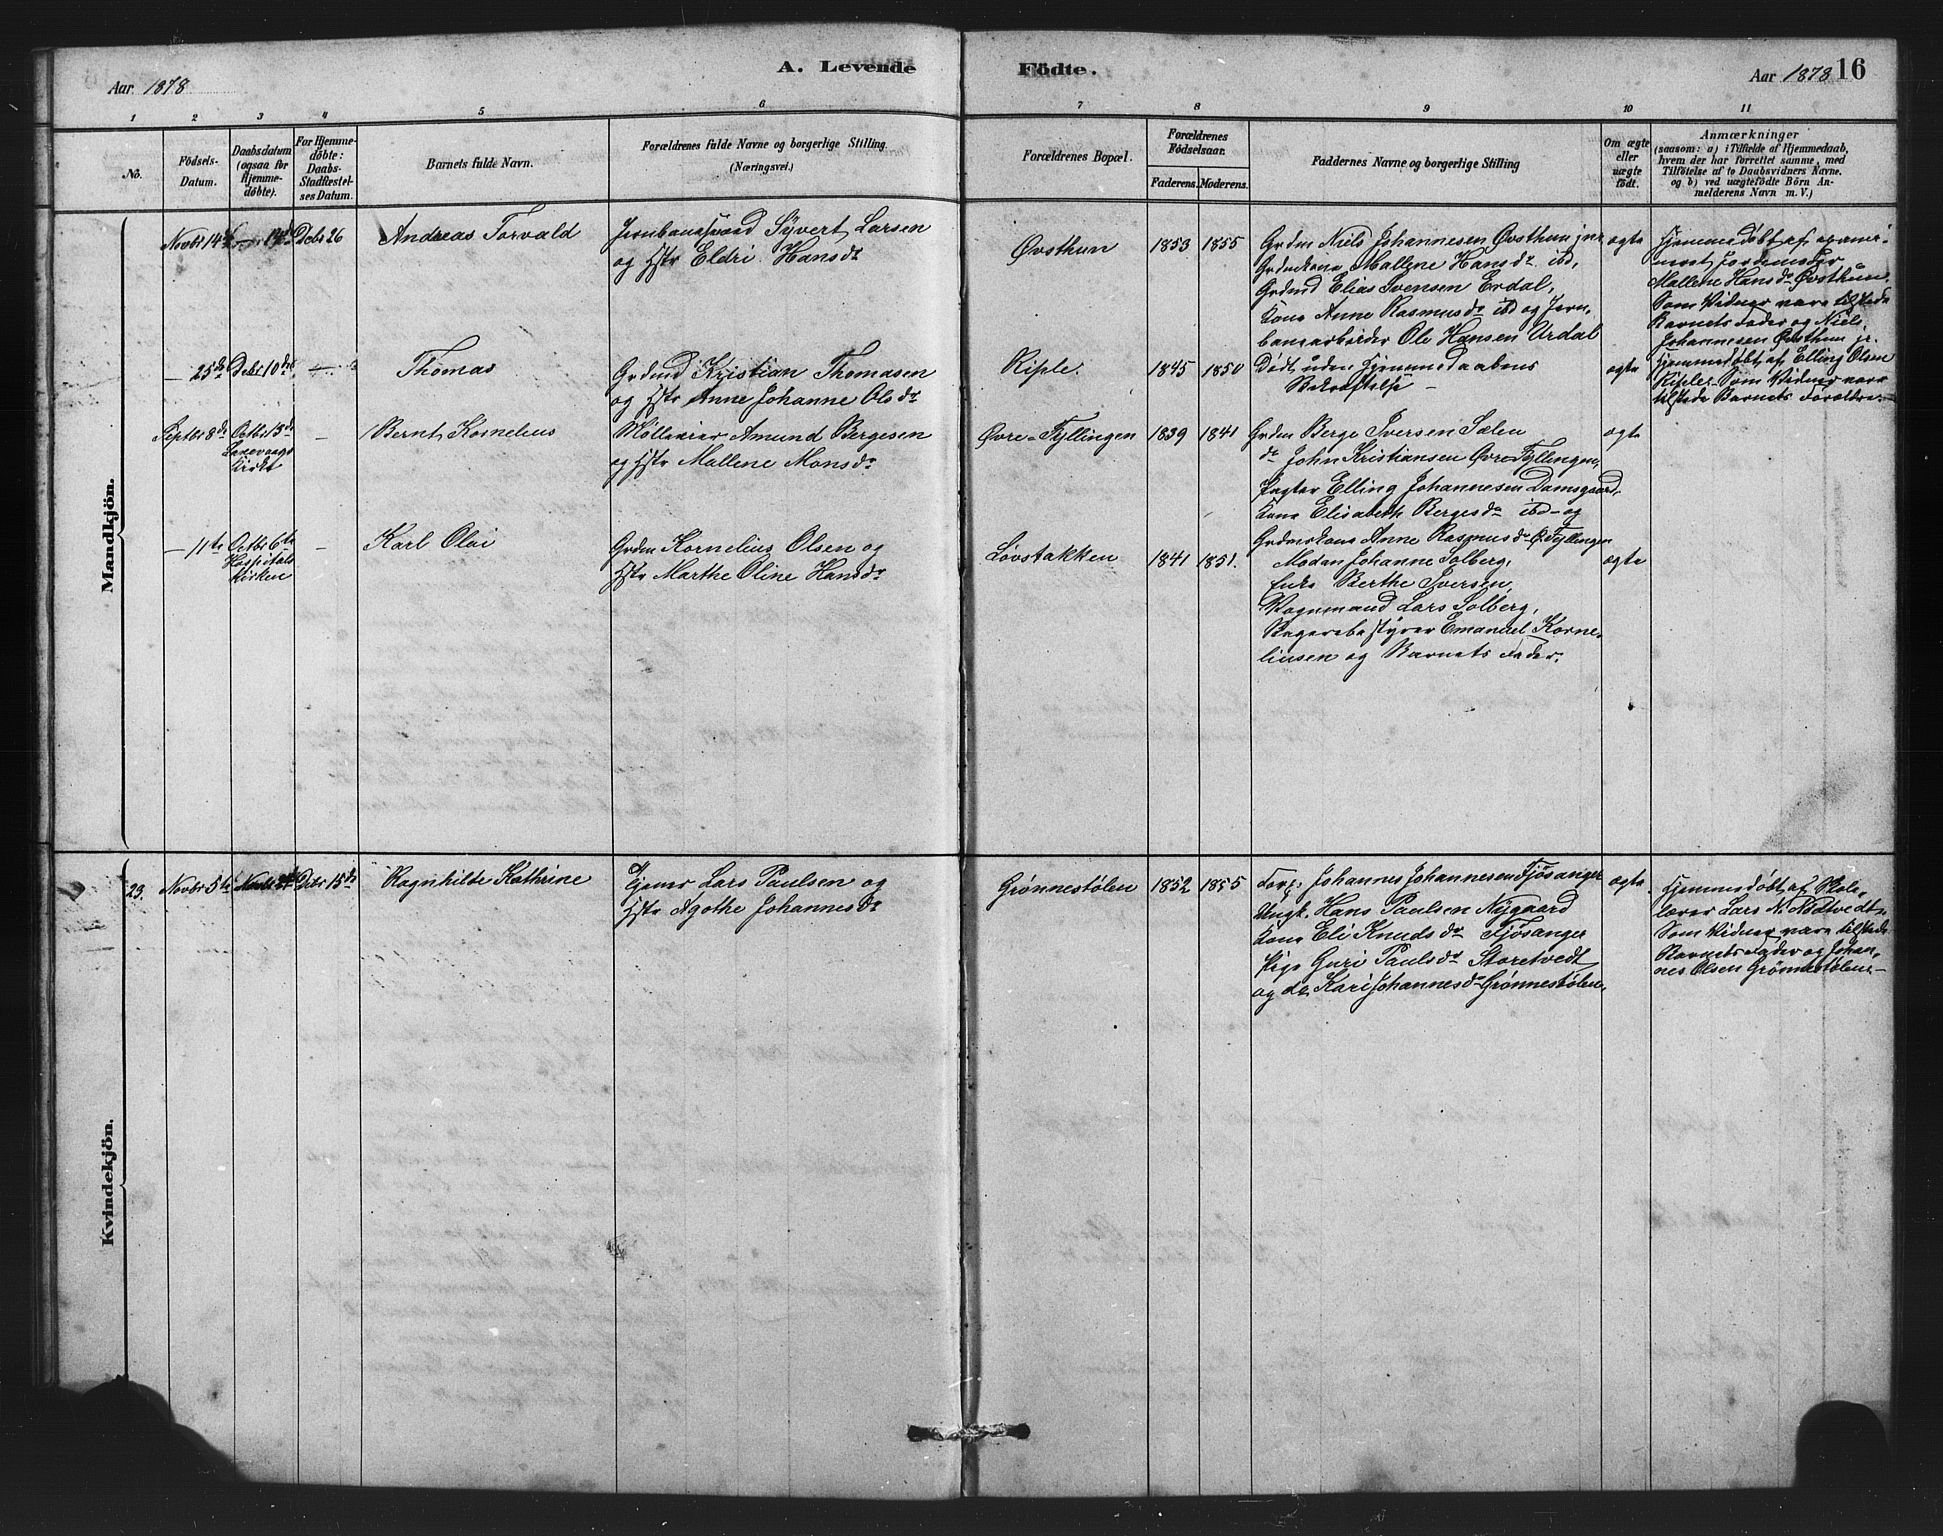 A. Levende Födte.
Aar 1878
Aar 1878 16
1 2 3 4 5 6 7 8 9 10 11
No.
Födsels-Datum.
Daabsdatum (ogsaa for Hjemmedöbte).
For Hjemmedöbte: Daabs-Stadfæstelses Datum.
Barnets fulde Navn.
Forældrenes fulde Navne og borgerlige Stilling. (Næringsvei.)
Forældrenes Bopæl.
Forældrenes Födselsaar.
Faderens. Moderens.
Faddernes Navne og borgerlige Stilling
Om ægte eller uægte födt.
Anmærkninger
(saasom: a) i Tilfælde af Hjemmedaab,
hvem der har forrettet samme, med
Tilföielse af to Daabsvidners Navne.
og b) ved uægtefödte Börn An-
melderens Navn m. V.)
Mandkjön.
Novbr 14
Debr 26
Andreas Torvald
Syvert Larsen
og Hstr Eldri Hansdr
Øvsthun
1853 1855
Grdm Niels Johannesen Øvsthun jnr
Grdmkone Mallene Hansdr ibd,
Grdmd Elias Ivensen Erdal,
Kone Anne Rasmusdr ibd og Jern-
banearbeider Ole Hansen Urdal
ægte
Hjemmedøbt af exami-
neret Jordemoder
Mallene Hansdr Øvsthun.
Som Vidner vare tilstede
Barnets Fader og Niels
Johannesen Øvsthun jr.
— 25de
Debr 10de
—
Thomas
Grdmd Kristian Thomasen
og Hstr Anne Johanne Olsdr
Riple.
1845 1850
Dødt uden Hjemmedaabens
Bekræftelse —
ægte
Hjemmedøbt af Elling Olsen
Riple. Som Vidner vare
tilstede Barnets Forældre. —
Septbr 8de
Octbr 13de
Laxevaags
Kirke
—
Bernt Kornelius
Møllerier Amund Bergesen
og Hstr Mallene Monsdr
Øvre-Fyllingen
1839 1841
Grdm Berge Iversen Sælen
do John Kristiansen Øvre Fyllingen,
Pagter Elling Johannesen Damsgaard,
Kone Elisabeth Bergesdr ibd — og
Grdmkone Anne Rasmusdr Ø. Fyllingen
ægte
— 11te
Octbr 6te
Hospitals
Kirken
—
Karl Olai
Grdm Kornelius Olsen og
Hstr Marthe Oline Hansdr
Løvstakken
1841 1851.
Madam Johanne Solberg,
Enke Berthe Iversen,
Vognmand Lars Solberg,
Bagerebestyrer Emanuel Korne-
liusen og Barnets Fader.
ægte
Kvindekjön.
23.
Novbr 5te
Debr 15de
Ragnhilde Kathrine
Ejener Lars Paulsen og
Hstr Agothe Johannesdr
Grønnestølen
1852 1855
Forp: Johannes Johannesen Fjøsanger
Ungk. Hans Paulsen Nygaard
Kone Eli Knudsdr Fjøsanger
Pige Guri Paulsdr Storetvedt
og do Kari Johannesdr Grønnestølen.
ægte
Hjemmedøbt af Skole-
lærer Lars N. Nodtvedt.
Som Vidner vare tilstede
Barnets Fader og Johan-
nes Olsen Grønnestølen —